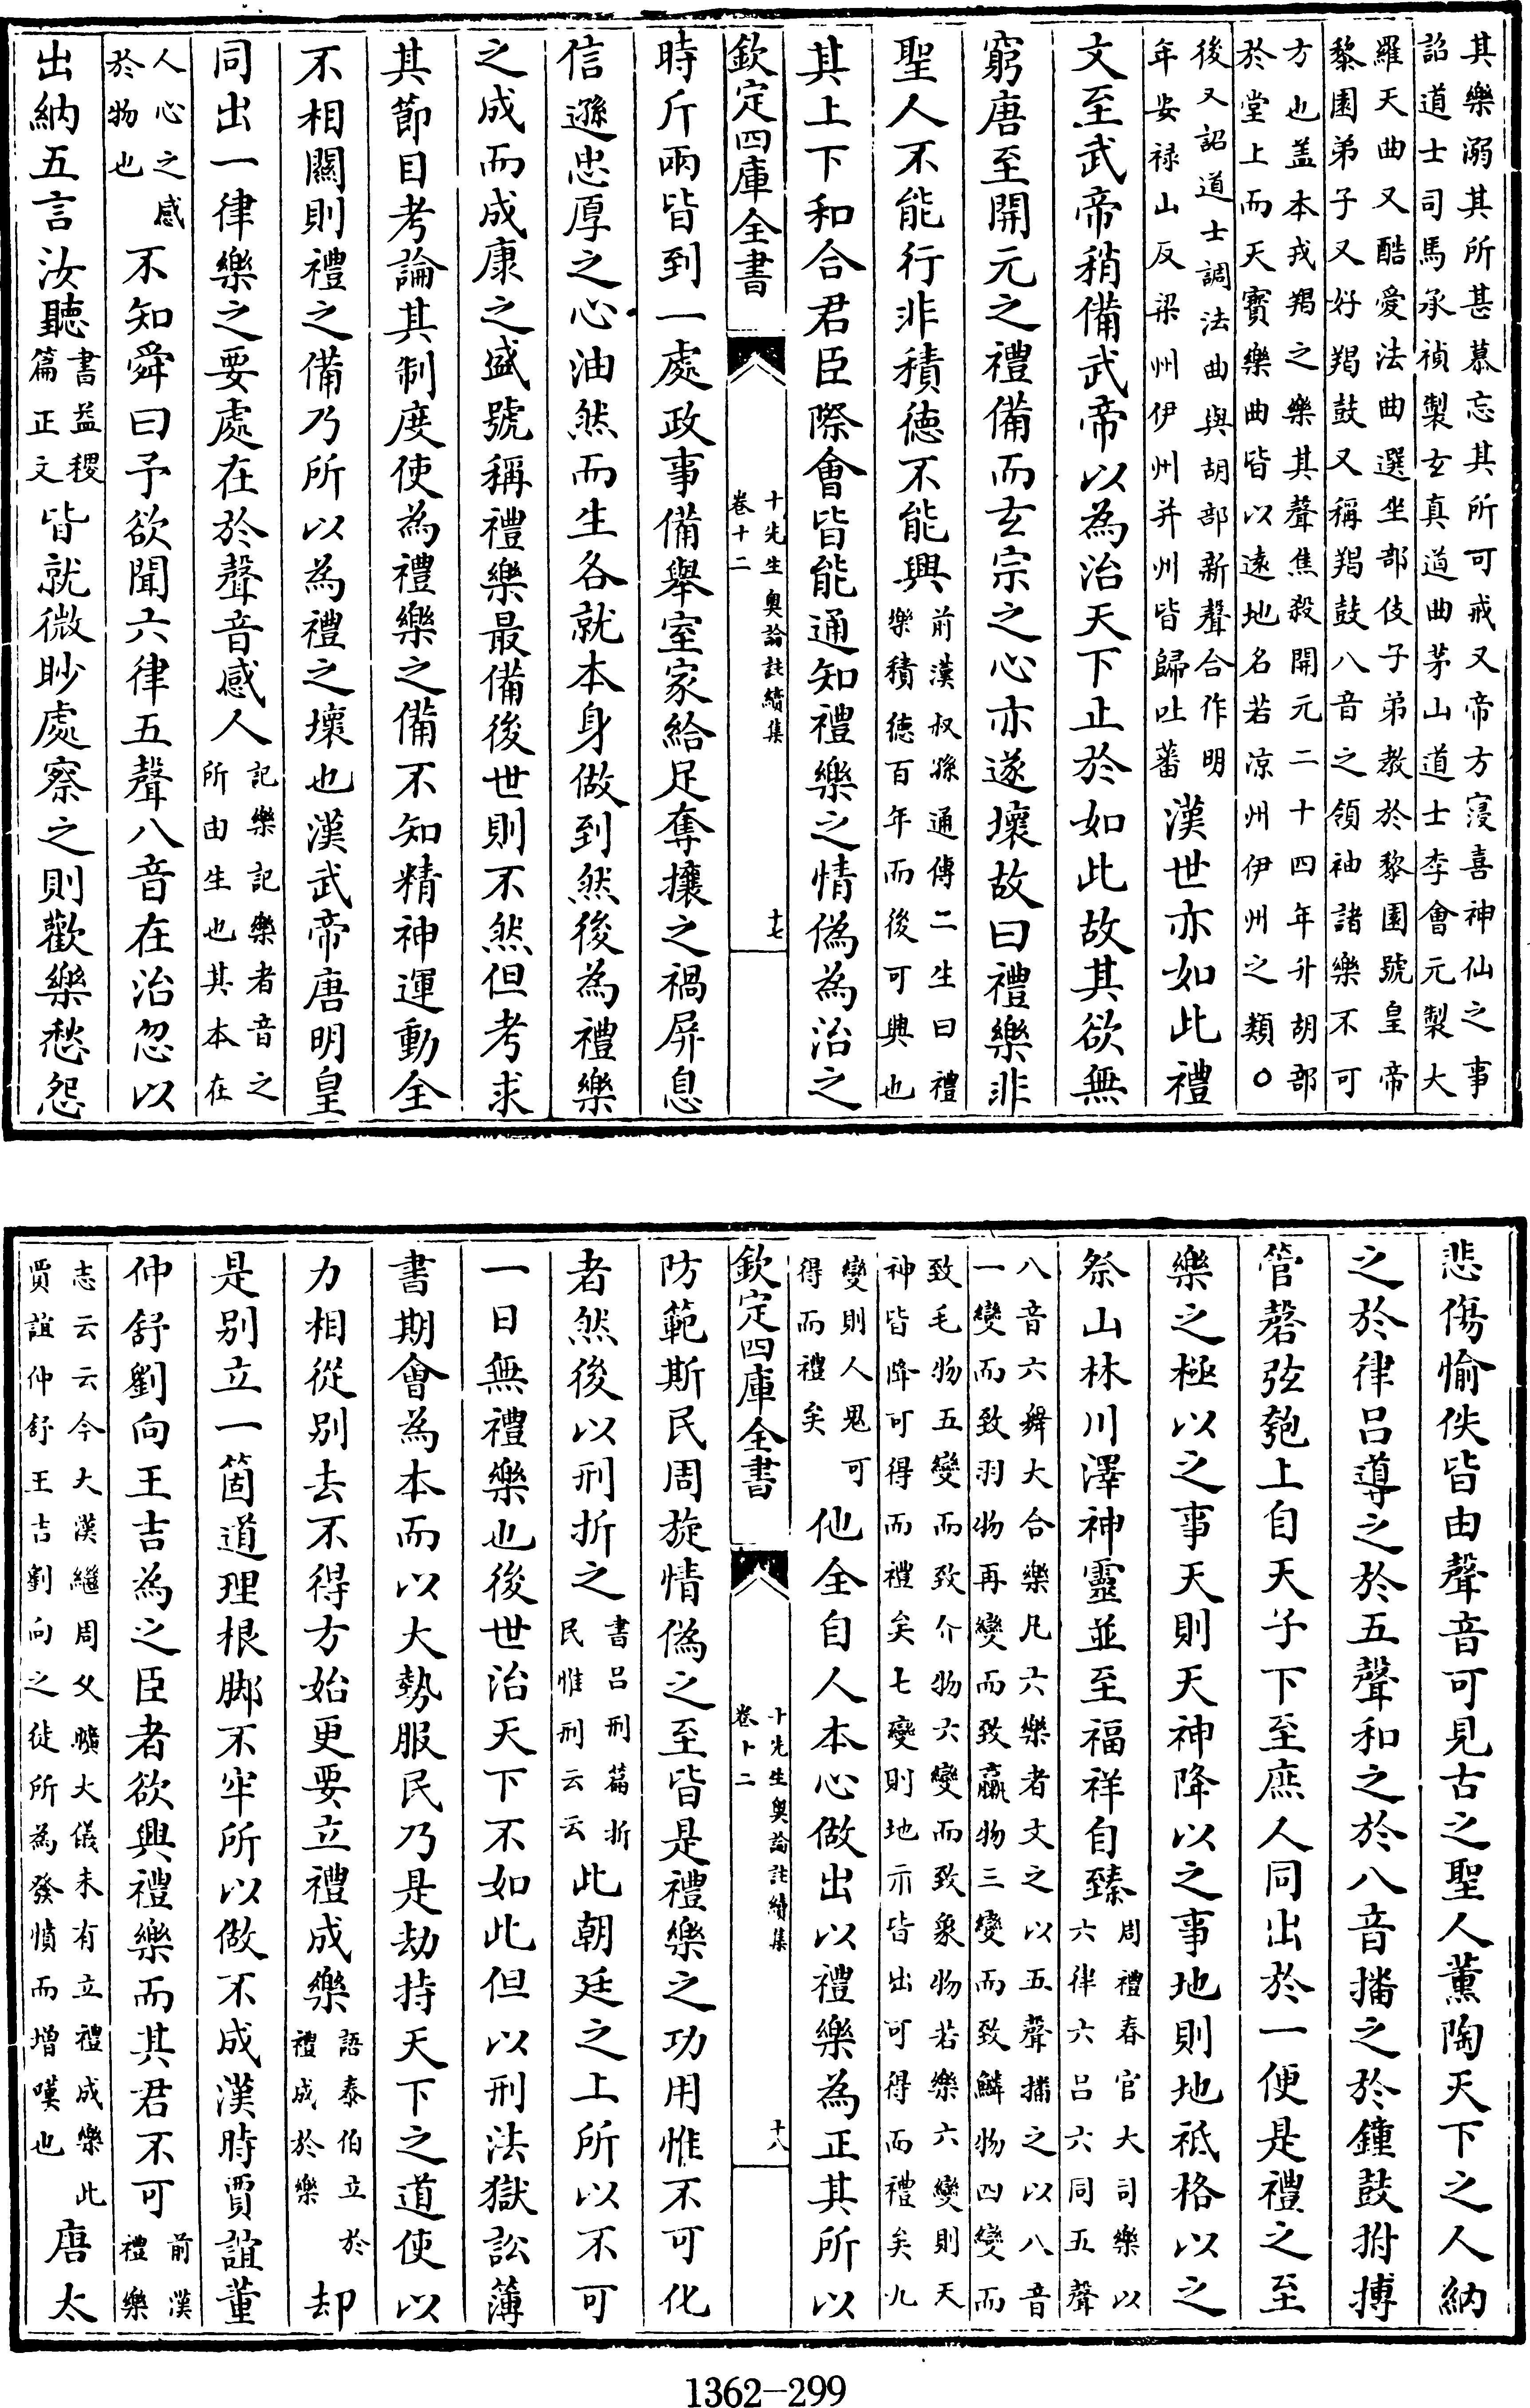 其樂溺其所甚慕忘其所可戒又帝方寖喜神仙之事
詔道士司馬承禎製玄真道曲茅山道士李會元製大
羅天曲又酷愛法曲選坐部伎子弟教於黎園號皇帝
黎園弟子又好羯鼓又稱羯鼓八音之領袖諸樂不可
方也盖本戎羯之樂其聲焦殺開元二十四年升胡部
於堂上而天寶樂曲皆以遠地名若凉州伊州之類〇
後又詔道士調法曲與胡部新聲合作明
年安禄山反梁州伊州并州皆歸吐蕃
漢世亦如此禮
文至武帝稍備武帝以為治天下止於如此故其欲無
窮唐至開元之禮備而玄宗之心亦遂壞故曰禮樂非
聖人不能行非積德不能興
前漢叔孫通傳二生曰禮
樂積德百年而後可興也
其上下和合君臣際會皆能通知禮樂之情偽為治之
欽定四庫全書
十先生奥論註續集
卷十二
十七
時斤兩皆到一處政事備舉室家給足奪攘之禍屏息
信遜忠厚之心油然而生各就本身做到然後為禮樂
之成而成康之盛號稱禮樂最備後世則不然但考求
其節目考論其制度使為禮樂之備不知精神運動全
不相關則禮之備乃所以為禮之壞也漢武帝唐明皇
同出一律樂之要處在於聲音感人
記樂記樂者音之
所由生也其本在
人心之感
於物也
不知舜曰予欲聞六律五聲八音在治忽以
出納五言汝聽
書益稷
篇正文
皆就微眇處察之則歡樂愁怨
悲傷愉佚皆由聲音可見古之聖人薰陶天下之人納
之於律吕導之於五聲和之於八音播之於鐘鼓拊搏
管磬弦匏上自天子下至庶人同出於一便是禮之至
樂之極以之事天則天神降以之事地則地祇格以之
祭山林川澤神靈並至福祥自臻
周禮春官大司樂以
六律六吕六同五聲
八音六舞大合樂凡六樂者文之以五聲播之以八音
一變而致羽物再變而致臝物三變而致鱗物四變而
致毛物五變而致介物六變而致象物若樂六變則天
神皆降可得而禮矣七變則地示皆出可得而禮矣九
變則人鬼可
得而禮矣
他全自人本心做出以禮樂為正其所以
欽定四庫全書
十先生奥論註續集
卷十二
十八
防範斯民周旋情偽之至皆是禮樂之功用惟不可化
者然後以刑折之
書吕刑篇折
民惟刑云云
此朝廷之上所以不可
一日無禮樂也後世治天下不如此但以刑法獄訟薄
書期會為本而以大勢服民乃是劫持天下之道使以
力相從别去不得方始更要立禮成樂
語泰伯立於
禮成於樂
却
是别立一箇道理根脚不牢所以做不成漢時賈誼董
仲舒劉向王吉為之臣者欲興禮樂而其君不可
前漢
禮樂
志云云今大漢繼周久曠大儀未有立禮成樂此
賈誼仲舒王吉劉向之徒所為發憤而增嘆也
唐太
1362-299